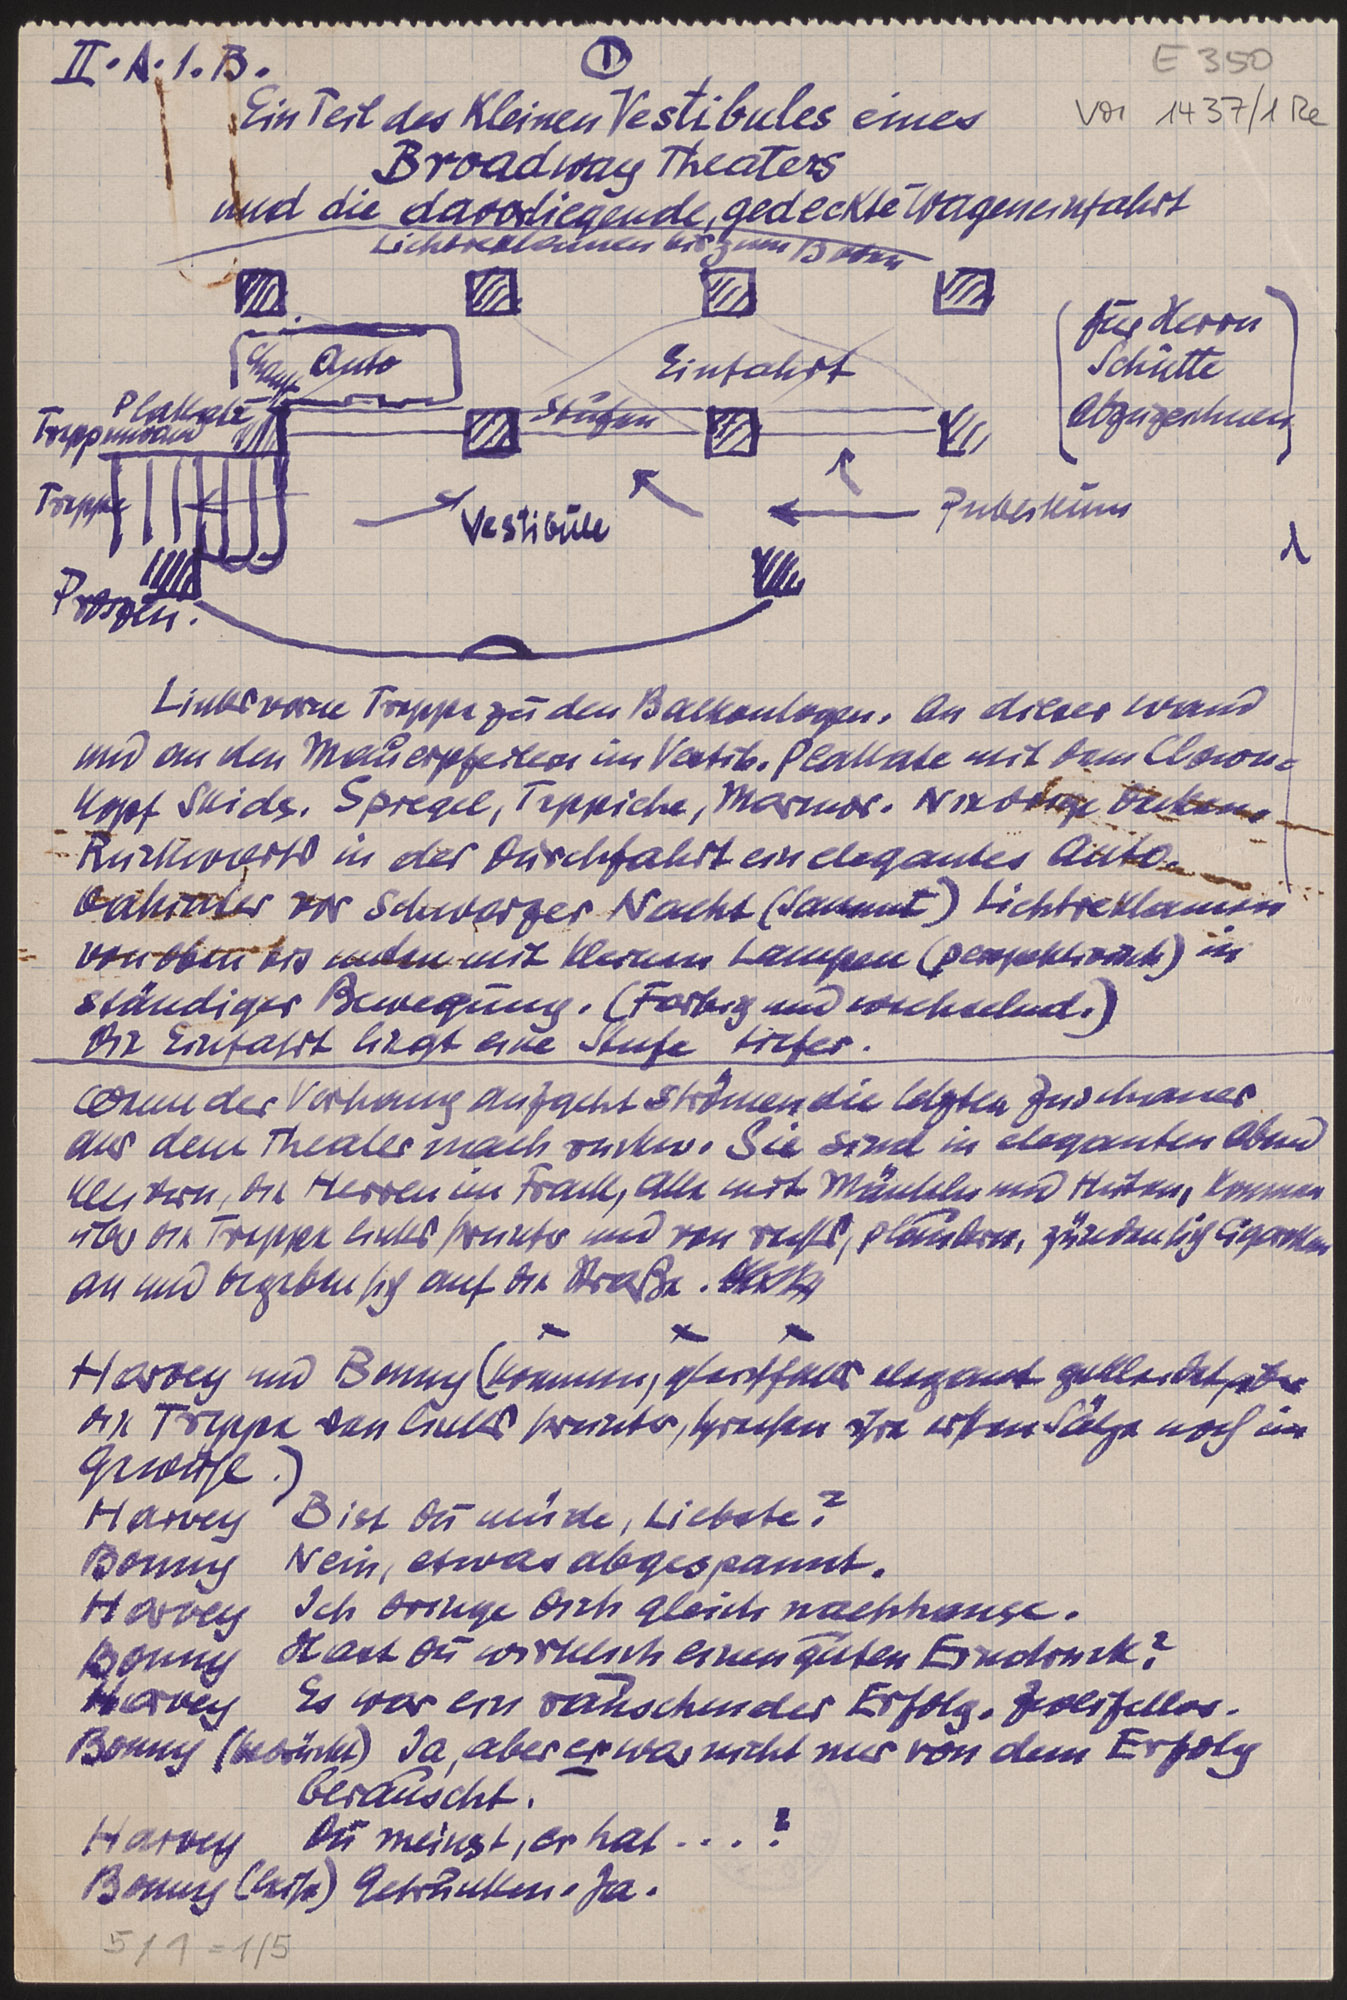 II. A. 1. B.
①
E 350
Von 1437/1 Re
Ein Teil des Kleinen Vestibules eines
Broadway Theaters
und die davorliegende, gedeckte Wageneinfahrt
Lichtreklamen bis zum Boden
Auto
Einfahrt
(für Herrn
Schütte
abzuzeichnen)
Plakate
Treppenwand
Stufen
Treppe
Vestibüle
Publikum
1
Proszen.
Links vorne Treppe zu den Balkonlogen. An dieser Wand
und an den Mauerpfeilern im Vestib. Plakate mit dem Clown-
kopf Skids. Spiegel, Teppiche, Marmor. Niedrige Decken.
Rückwärts in der Durchfahrt ein elegantes Auto.
Dahinter vor Schwarzer Nacht (Sammt) Lichtreklamen
von oben bis unten mit kleinen Lampen (perspektivisch) in
ständiger Bewegung. (Farbig und wechselnd.)
Die Einfahrt liegt eine Stufe tiefer.
Wenn der Vorhang aufgeht strömen die letzten Zuschauer
aus dem Theater nach rückw. Sie sind in eleganten Abend
kleidern, die Herren im Frack, alle mit Mänteln und Hüten, kommen
über die Treppe links herunter und von rechts, plaudern, zünden sich Cigaretten
an und begeben sich auf die Straße.
Harvey und Bonny (kommen, gleichfalls elegant gekleidet,
die Treppe von links herunter, sprechen ihre ersten Sätze noch im
Gewühl.)
Harvey Bist Du müde, Liebste?
Bonny Nein, etwas abgespannt.
Harvey Ich bringe Dich gleich nachhause.
Bonny Hast Du wirklich einen guten Eindruck?
Harvey Es war ein rauschender Erfolg. Zweifellos.
Bonny (bedrückt) Ja, aber er war nicht nur von dem Erfolg
berauscht.
Harvey Du meinst, er hat . . . . ?
Bonny (leise) Getrunken. Ja.
5/1 = 1/5